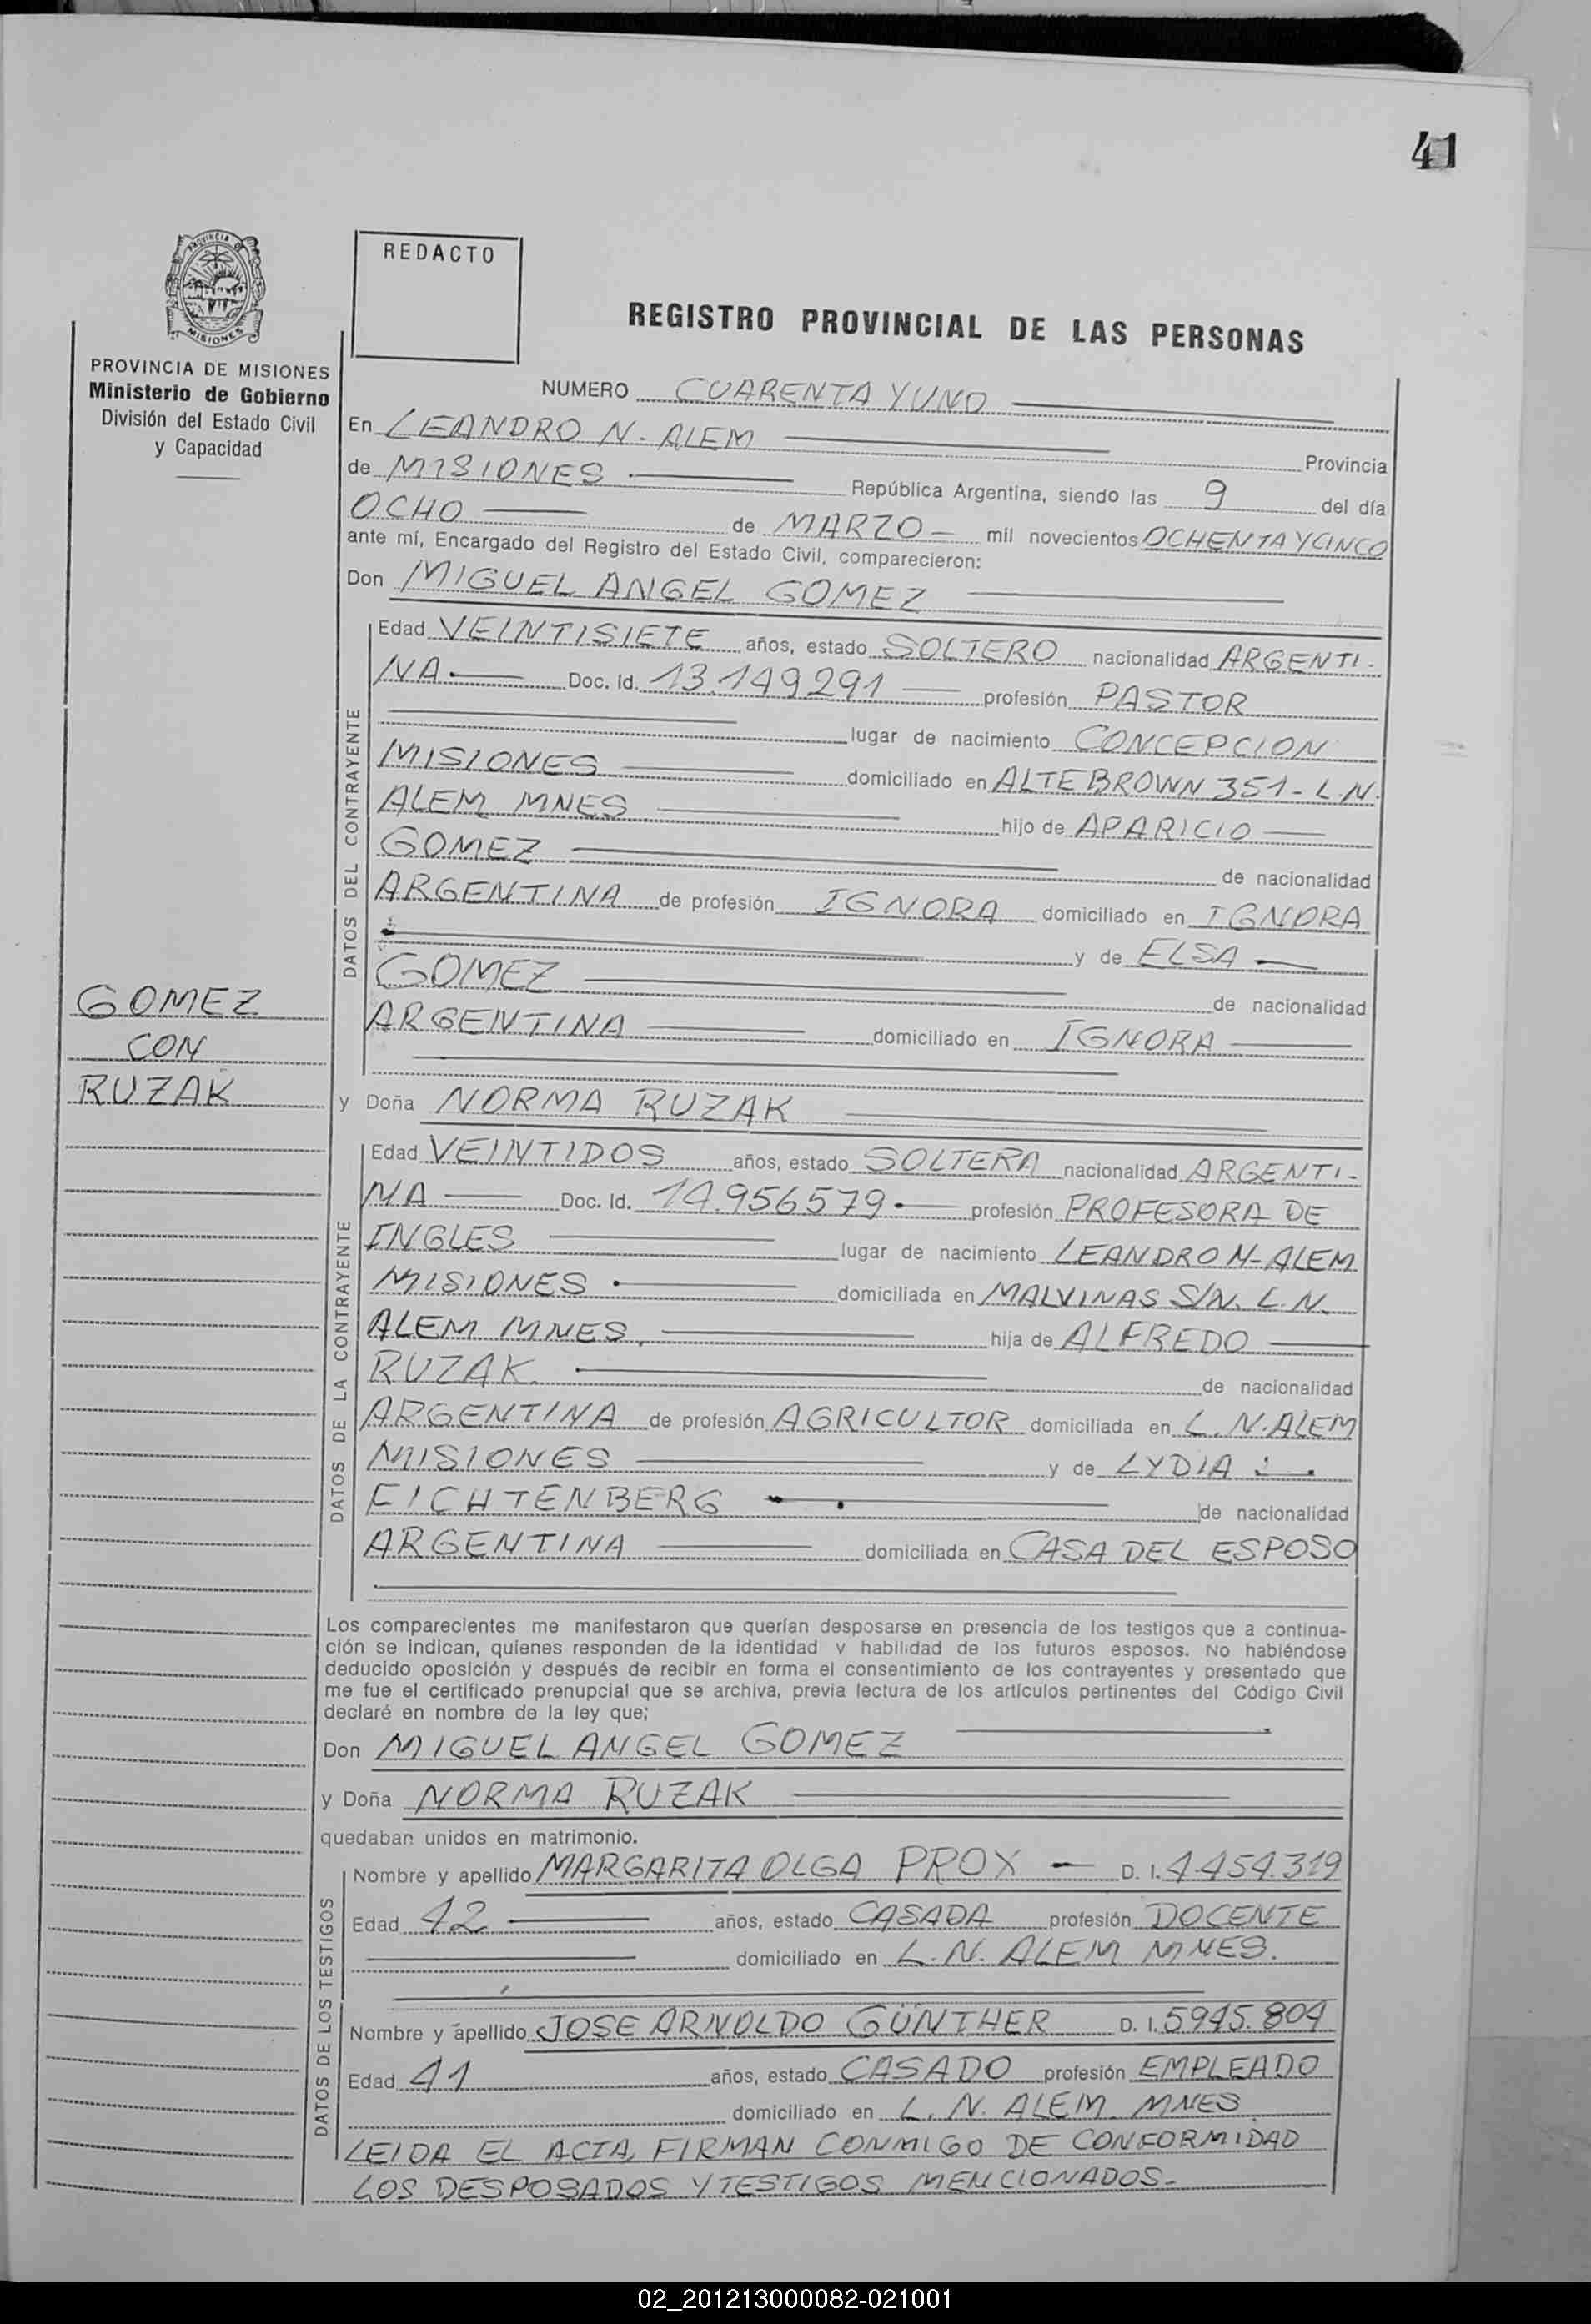 41
PROVINCIA DE
MISIONES
PROVINCIA DE MISIONES
Ministerio de Gobierno
División del Estado Civil
y Capacidad
REDACTO
REGISTRO PROVINCIAL DE LAS PERSONAS
NUMERO CUARENTA Y UNO
En LEANDRO N. ALEM Provincia
de MISIONES República Argentina, siendo las 9 del día
OCHO de MARZO mil novecientos OCHENTA Y CINCO
ante mí, Encargado del Registro del Estado Civil, comparecieron:
Don MIGUEL ANGEL GOMEZ
DATOS DEL CONTRAYENTE
Edad VEINTISIETE años, estado SOLTERO nacionalidad ARGENTI-
NA Doc. Id. 13.149291 profesión PASTOR
lugar de nacimiento CONCEPCION
MISIONES domiciliado en ALTE BROWN 351- L.N.
ALEM MNES hijo de APARICIO
GOMEZ de nacionalidad
ARGENTINA de profesión IGNORA domiciliado en IGNORA
y de ELSA
GOMEZ de nacionalidad
ARGENTINA domiciliado en IGNORA
GOMEZ
CON
RUZAK
y Doña NORMA RUZAK
DATOS DE LA CONTRAYENTE
Edad VEINTIDOS años, estado SOLTERA nacionalidad ARGENTI-
NA Doc. Id. 14.956579 profesión PROFESORA DE
INGLES lugar de nacimiento LEANDRO N-ALEM
MISIONES domiciliada en MALVINAS S/N. L.N.
ALEM MNES, hija de ALFREDO
RUZAK. de nacionalidad
ARGENTINA de profesión AGRICULTOR domiciliada en L.N.ALEM
MISIONES y de LYDIA
FICHTENBERG de nacionalidad
ARGENTINA domiciliada en CASA DEL ESPOSO
Los comparecientes me manifestaron que querían desposarse en presencia de los testigos que a continua-
ción se indican, quienes responden de la identidad y habilidad de los futuros esposos. No habiéndose
deducido oposición y después de recibir en forma el consentimiento de los contrayentes y presentado que
me fue el certificado prenupcial que se archiva, previa lectura de los artículos pertinentes del Código Civil
declaré en nombre de la ley que;
Don MIGUEL ANGEL GOMEZ
y Doña NORMA RUZAK
quedaban unidos en matrimonio.
DATOS DE LOS TESTIGOS
Nombre y apellido MARGARITA OLGA PROX D. I. 4.454.319
Edad 42 años, estado CASADA profesión DOCENTE
domiciliado en L.N. ALEM MNES.
Nombre y apellido JOSE ARNOLDO GÜNTHER D. I. 5945.804
Edad 41 años, estado CASADO profesión EMPLEADO
domiciliado en L. N. ALEM MNES
LEIDA EL ACTA, FIRMAN CONMIGO DE CONFORMIDAD
LOS DESPOSADOS Y TESTIGOS MENCIONADOS-
02_201213000082-021001